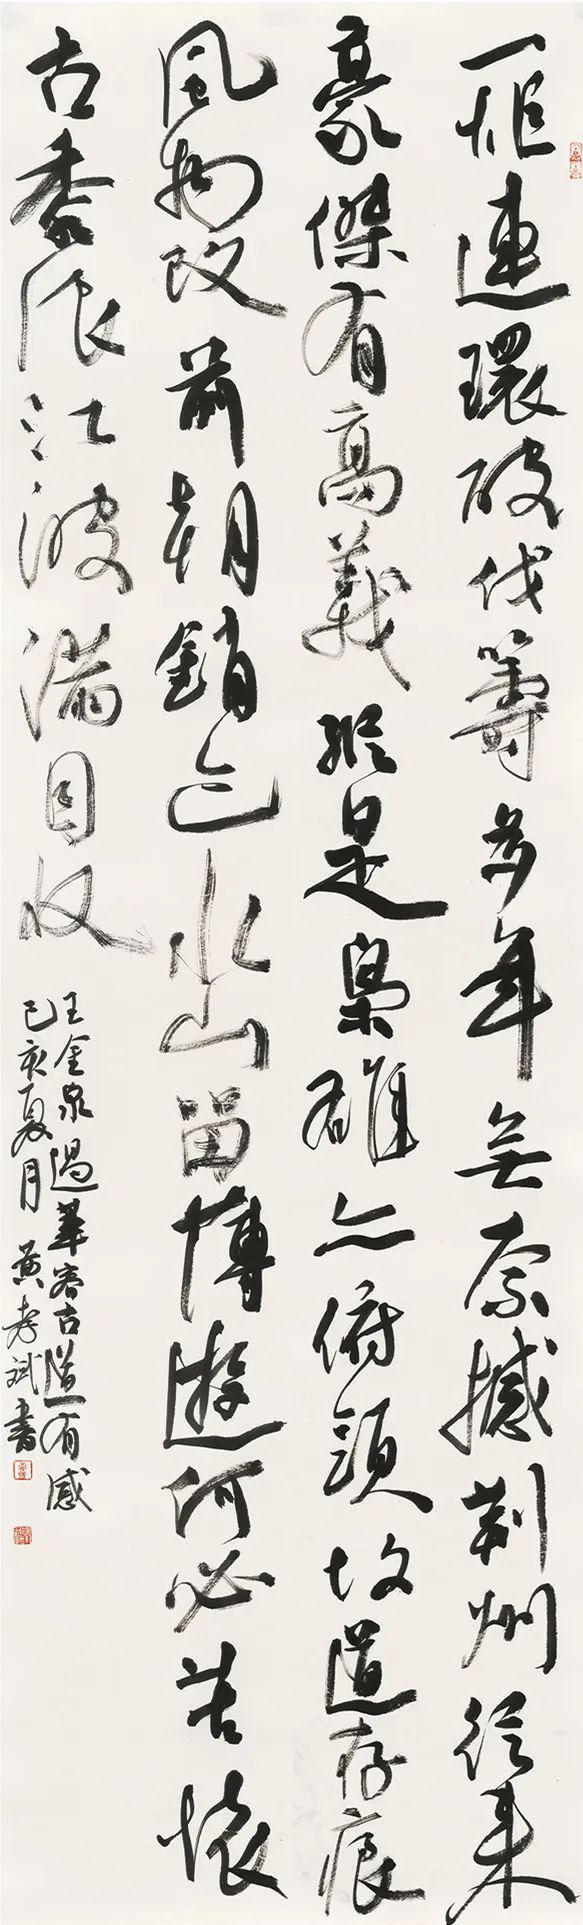 一炬連環破伐籌多年無奈撼荊州從來
豪傑有高義縱是梟雄亦俯頭故道存痕
風物改前朝銷亡水山留博遊何必苦懷
古黍浪江波滿目收
王金泉過華容古道有感
己亥夏月黄孝斌書